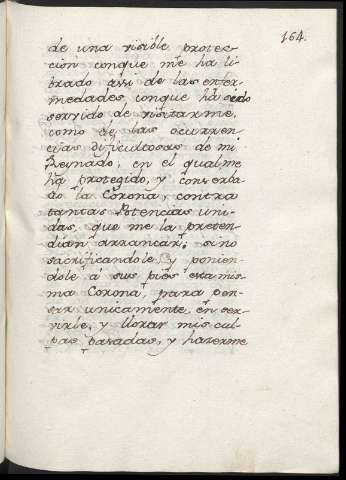 164.
de una visible protec-
cion conque me ha li-
brado assi de las enfer-
medades conque ha sido
servido de visitarme,
como de las ocurren-
cias dificultosas de mi
Reynado, en el qual me
ha protegido, y conserba-
do la Corona, contra
tantas Potencias uni-
das, que me la preten-
dian arrancar; sino
sacrificandole, y ponien-
dole á sus pies esta mis-
ma Corona, para pen-
sar unicamente en ser-
virle, y llorar mis cul-
pas pasadas, y hazerme